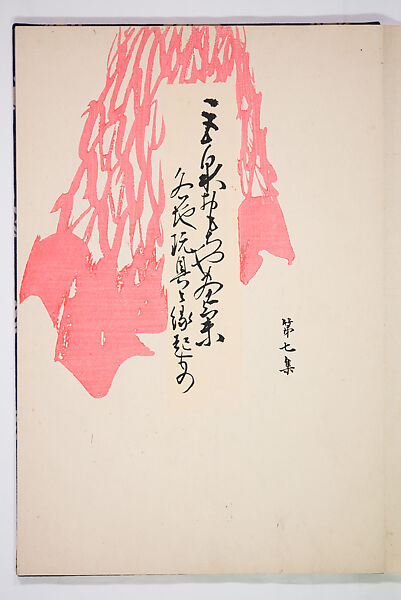 巨泉おもちや畫集
各地玩具と縁起もの
第七集